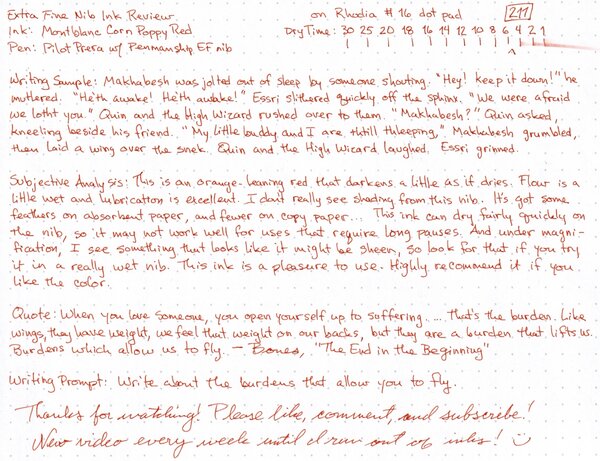 Extra Fine Nib Ink Review on Rhodia #16 dot pad 211
Ink: Montblanc Corn Poppy Red Dry Time: 30 25 20 18 16 14 12 10 8 6 4 2 1
Pen: Pilot Prera w/ Penmanship EF nib
Writing Sample: Makhabesh was jolted out of sleep by someone shouting. "Hey! keep it down!" he
muttered. "He'th awake! He'th awake!" Essri slithered quickly off the sphinx. "We were afraid
we lotht you." Quin and the High Wizard rushed over to them. "Makhabesh?" Quin asked,
kneeling beside his friend. "My little buddy and I are thtill thleeping," Makhabesh grumbled,
then laid a wing over the snek. Quin and the High Wizard laughed. Essri grinned.
Subjective Analysis: This is an orange-leaning red that darkens a little as it dries. Flow is a
little wet and lubrication is excellent. I don't really see shading from this nib. It's got some
feathers on absorbent paper, and fewer on copy paper... This ink can dry fairly quickly on
the nib, so it may not work well for uses that require long pauses. And under magni-
fication, I see something that looks like it might be sheen, so look for that if you try
it in a really wet nib. This ink is a pleasure to use. Highly recommend it if you
like the color.
Quote: When you love someone, you open yourself up to suffering.... that's the burden. Like
wings, they have weight, we feel that weight on our backs, but they are a burden that lifts us.
Burdens which allow us to fly. – Bones, "The End in the Beginning"
Writing Prompt: Write about the burdens that allow you to fly.
Thanks for watching! Please like, comment, and subscribe!
New video every week until I run out of inks!